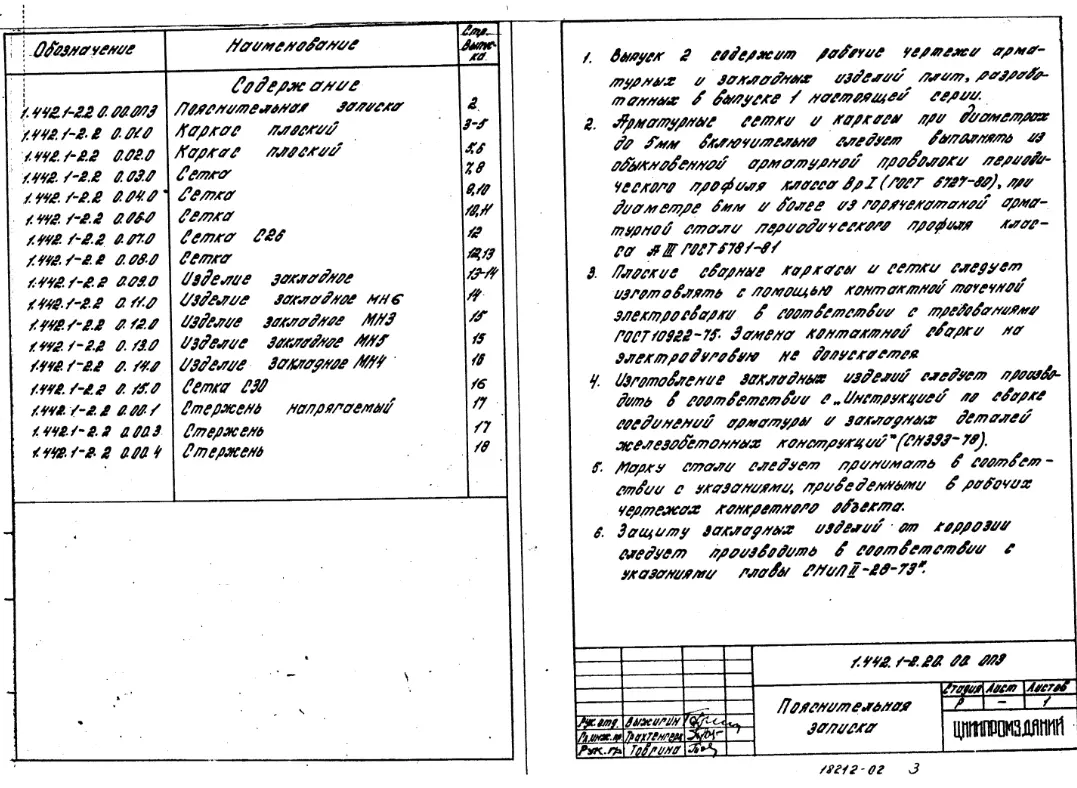 Обозначение Наименование Стр. Выпус-
ка
Содержание
1.442.1-2.2 0.00.0ПЗ Пояснительная записка 2
1.442.1-2.2 0.01.0 Каркас плоский 3-5
1.442.1-2.2 0.02.0 Каркас плоский 5,6
1.442.1-2.2 0.03.0 Сетка 7,8
1.442.1-2.2 0.04.0 Сетка 9,10
1.442.1-2.2 0.06.0 Сетка 10,11
1.442.1-2.2 0.07.0 Сетка С26 12
1.442.1-2.2 0.08.0 Сетка 12,13
1.442.1-2.2 0.09.0 Изделие закладное 13-14
1.442.1-2.2 0.11.0 Изделие закладное МН6 14
1.442.1-2.2 0.12.0 Изделие закладное МН3 15
1.442.1-2.2 0.13.0 Изделие закладное МН5 15
1.442.1-2.2 0.14.0 Изделие закладное МН4 16
1.442.1-2.2 0.15.0 Сетка С30 16
1.442.1-2.2 0.00.1 Стержень напрягаемый 17
1.442.1-2.2 0.00.3 Стержень 17
1.442.1-2.2 0.00.4 Стержень 18
1. Выпуск 2 содержит рабочие чертежи арма-
турных и закладных изделий плит, разрабо-
танных в выпуске 1 настоящей серии.
2. Арматурные сетки и каркасы при диаметрах
до 5мм включительно следует выполнять из
обыкновенной арматурной проволоки периоди-
ческого профиля класса Вр I (ГОСТ 6727-80), при
диаметре 6мм и более из горячекатаной арма-
турной стали периодического профиля клас-
са А III ГОСТ 5781-81
3. Плоские сварные каркасы и сетки следует
изготовлять с помощью контактной точечной
электросварки в соответствии с требованиями
ГОСТ 10922-75. Замена контактной сварки на
электродуговую не допускается.
4. Изготовление закладных изделий следует произво-
дить в соответствии с „Инструкцией по сварке
соединений арматуры и закладных деталей
железобетонных конструкций" (СН393-78).
5. Марку стали следует принимать в соответ-
ствии с указаниями, приведенными в рабочих
чертежах конкретного объекта.
6. Защиту закладных изделий от коррозии
следует производить в соответствии с
указаниями главы СНиП II-28-73*.
1.442.1-2.2 0.00.0ПЗ
Пояснительная
записка
Стадия Лист Листов
Р — 1
Рук. отд Выжигин
Гл.инж.пр Трахтенгерц
Рук.гр. Товрина
ЦНИИПРОМЗДАНИЙ
18212-02 3